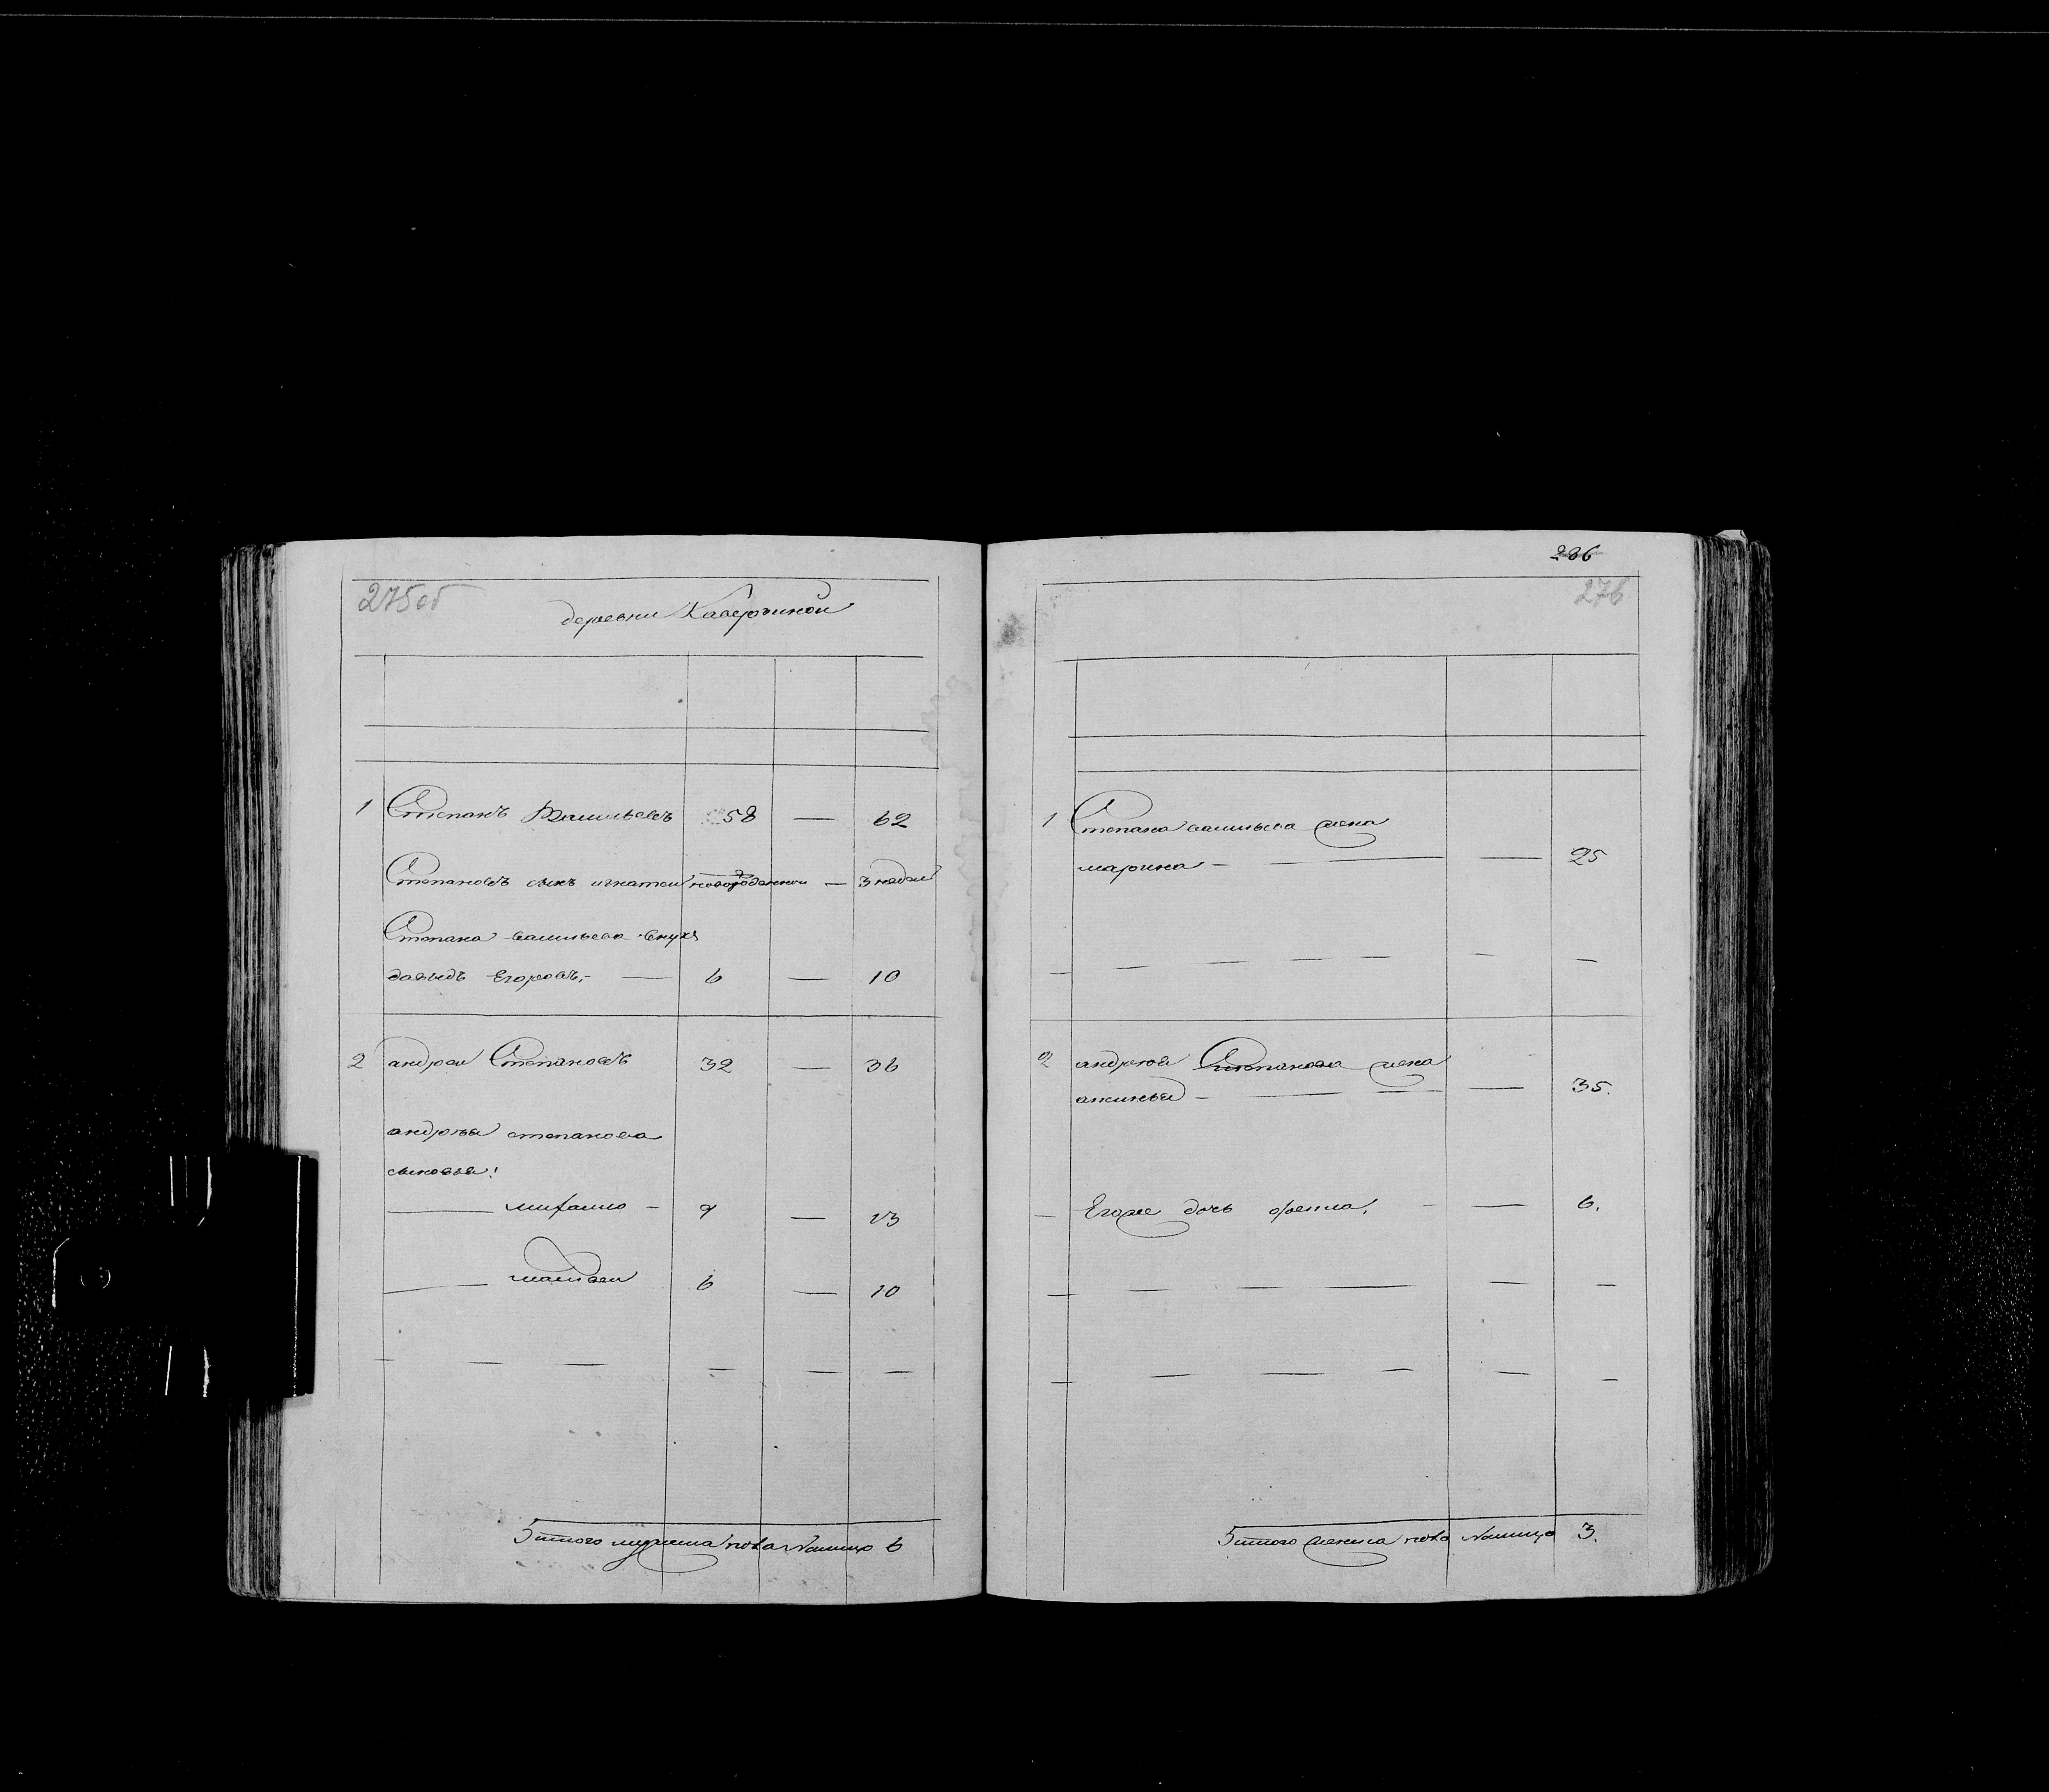 275об
деревни Каверзиной
1 Степанъ Васильевъ 58 — 62
Степановъ сынъ игнатеи новорожденнои — 3 недели
Степана васильева внукъ
давыдъ Егоровъ. — 6 — 10
2 андреи Степановъ 32 — 36
андрея степанова
сыновья:
— михаило — 9 — 13
— матвеи 6 — 10
Итого мужеска пола налицо 6
286
276
1 Степана васильева жена
марина — — 25
2 андрея Степанова жена
анисья — — 35.
Егоже дочь фекла. — — 6.
Итого женска пола налицо 3.